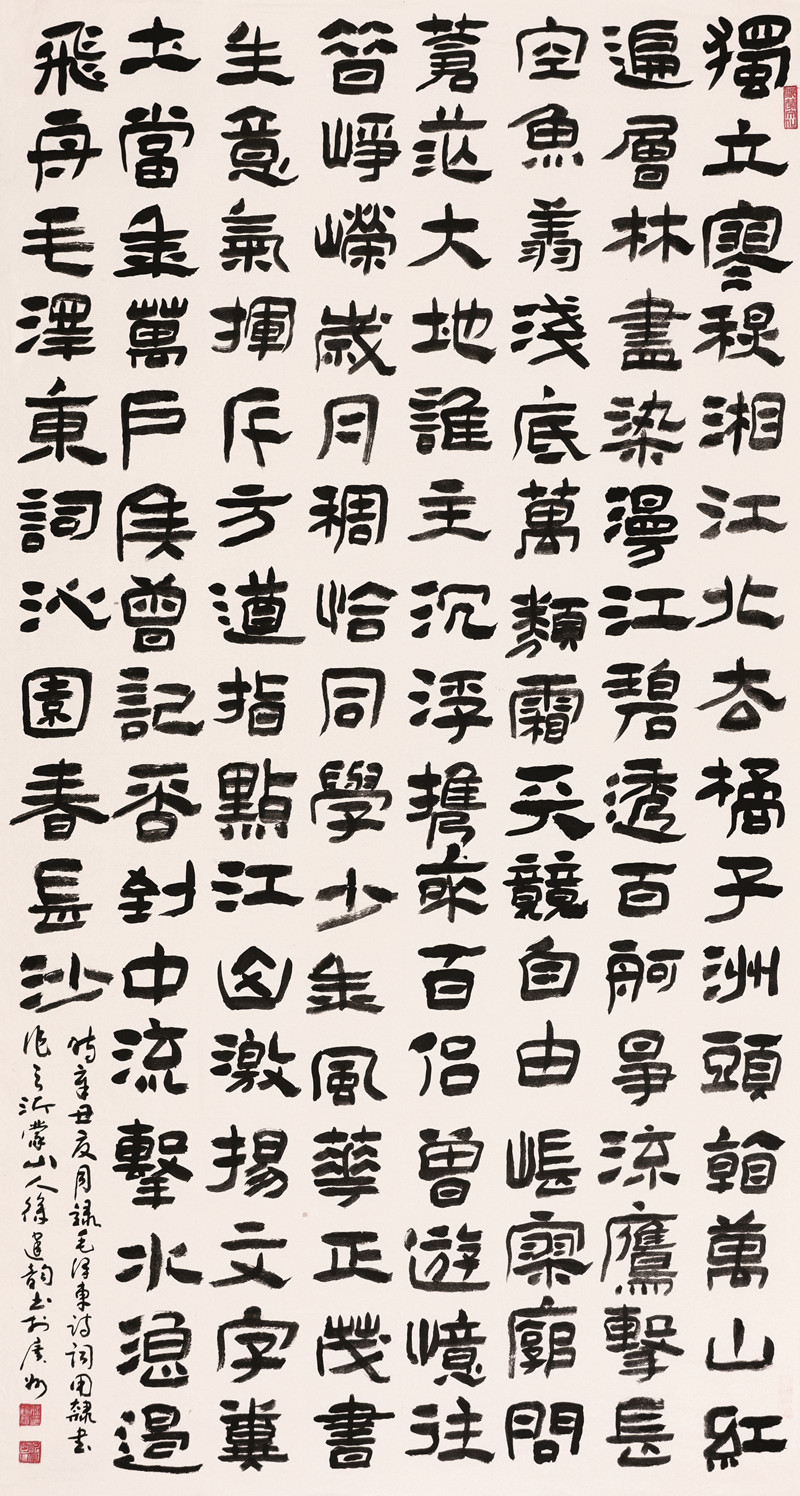 獨立寒秋湘江北去橘子洲頭看萬山紅
遍層林盡染漫江碧透百舸爭流鷹擊長
空魚翔淺底萬類霜天競自由悵寥廓問
蒼茫大地誰主沉浮攜來百侶曾遊憶往
昔崢嶸歲月稠恰同學少年風華正茂書
生意氣揮斥方遒指點江山激揚文字糞
土當年萬戶侯曾記否到中流擊水浪遏
飛舟毛澤東詞沁園春長沙
時辛丑夏月錄毛澤東詩詞用隸書
作之沂蒙山人徐建韵書於廣州